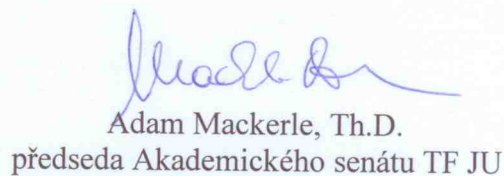 Adam Mackerle, Th.D.
předseda Akademického senátu TF JU